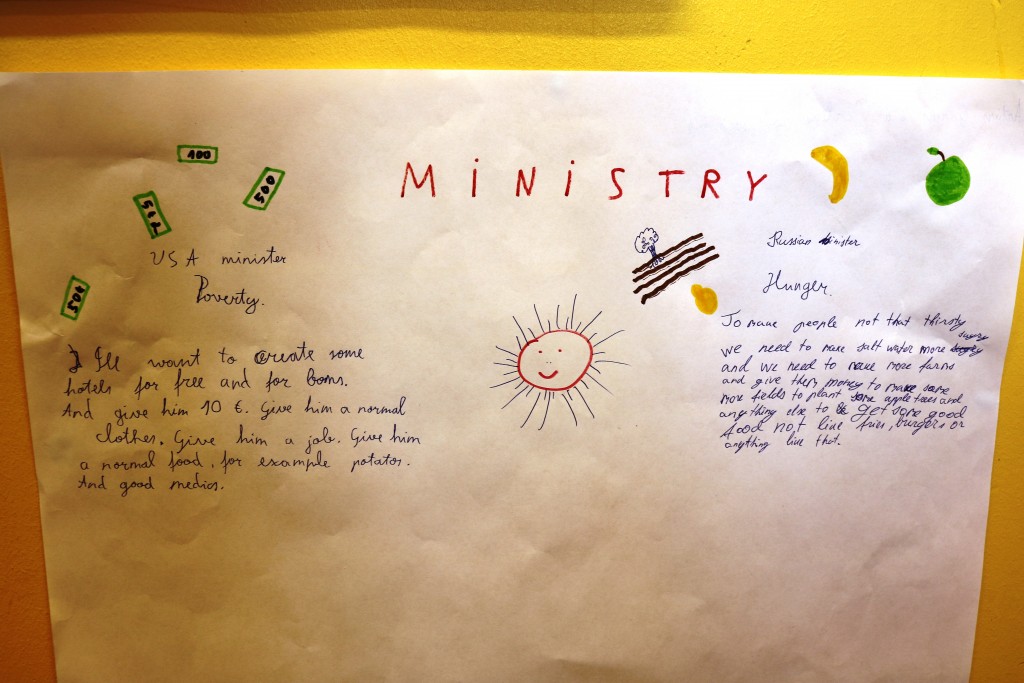 MiNiSTRY
100
500
500
500
USA minister
Poverty.
I Ill want to create some
hotels for free and for boms.
And give him 10 €. Give him a normal
clothes. Give him a job. Give him
a normal food, for example potatos.
And good medics.
Russian Minister
Hunger.
To make people not that thirsty
we need to make salt water more sugary
and we need to make more farms
and give them money to make some
more fields to plant some apple trees and
anything else to get some good
food not like fries, burgers or
anything like that.